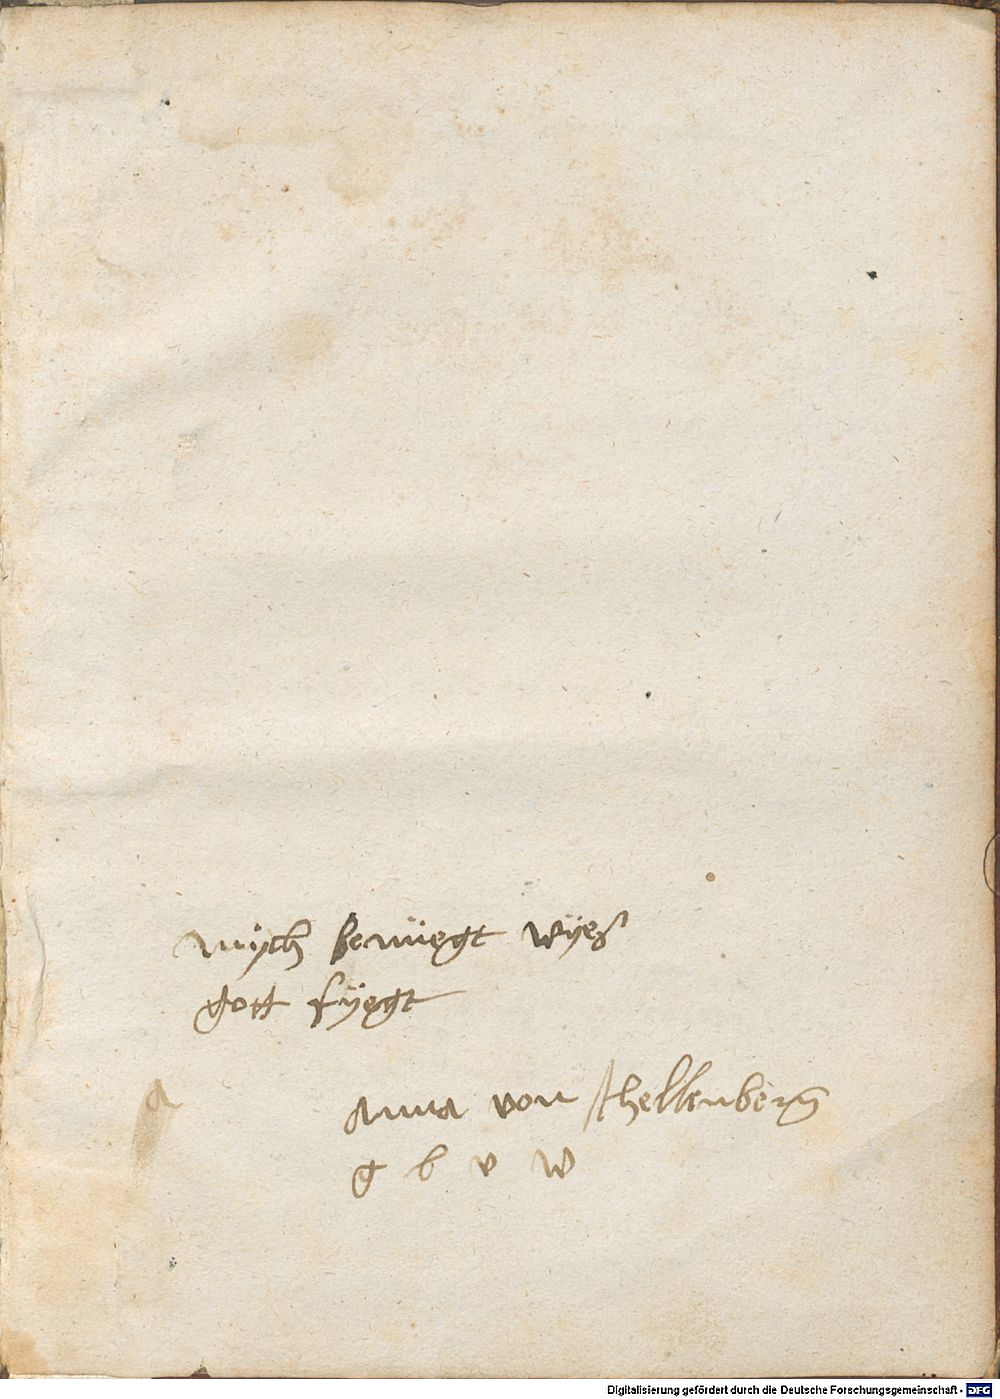 mÿch benüegt wÿes
gott fÿegt
a
anna von schellenberg
g b v w
Digitalisierung gefördert durch die Deutsche Forschungsgemeinschaft - DFG